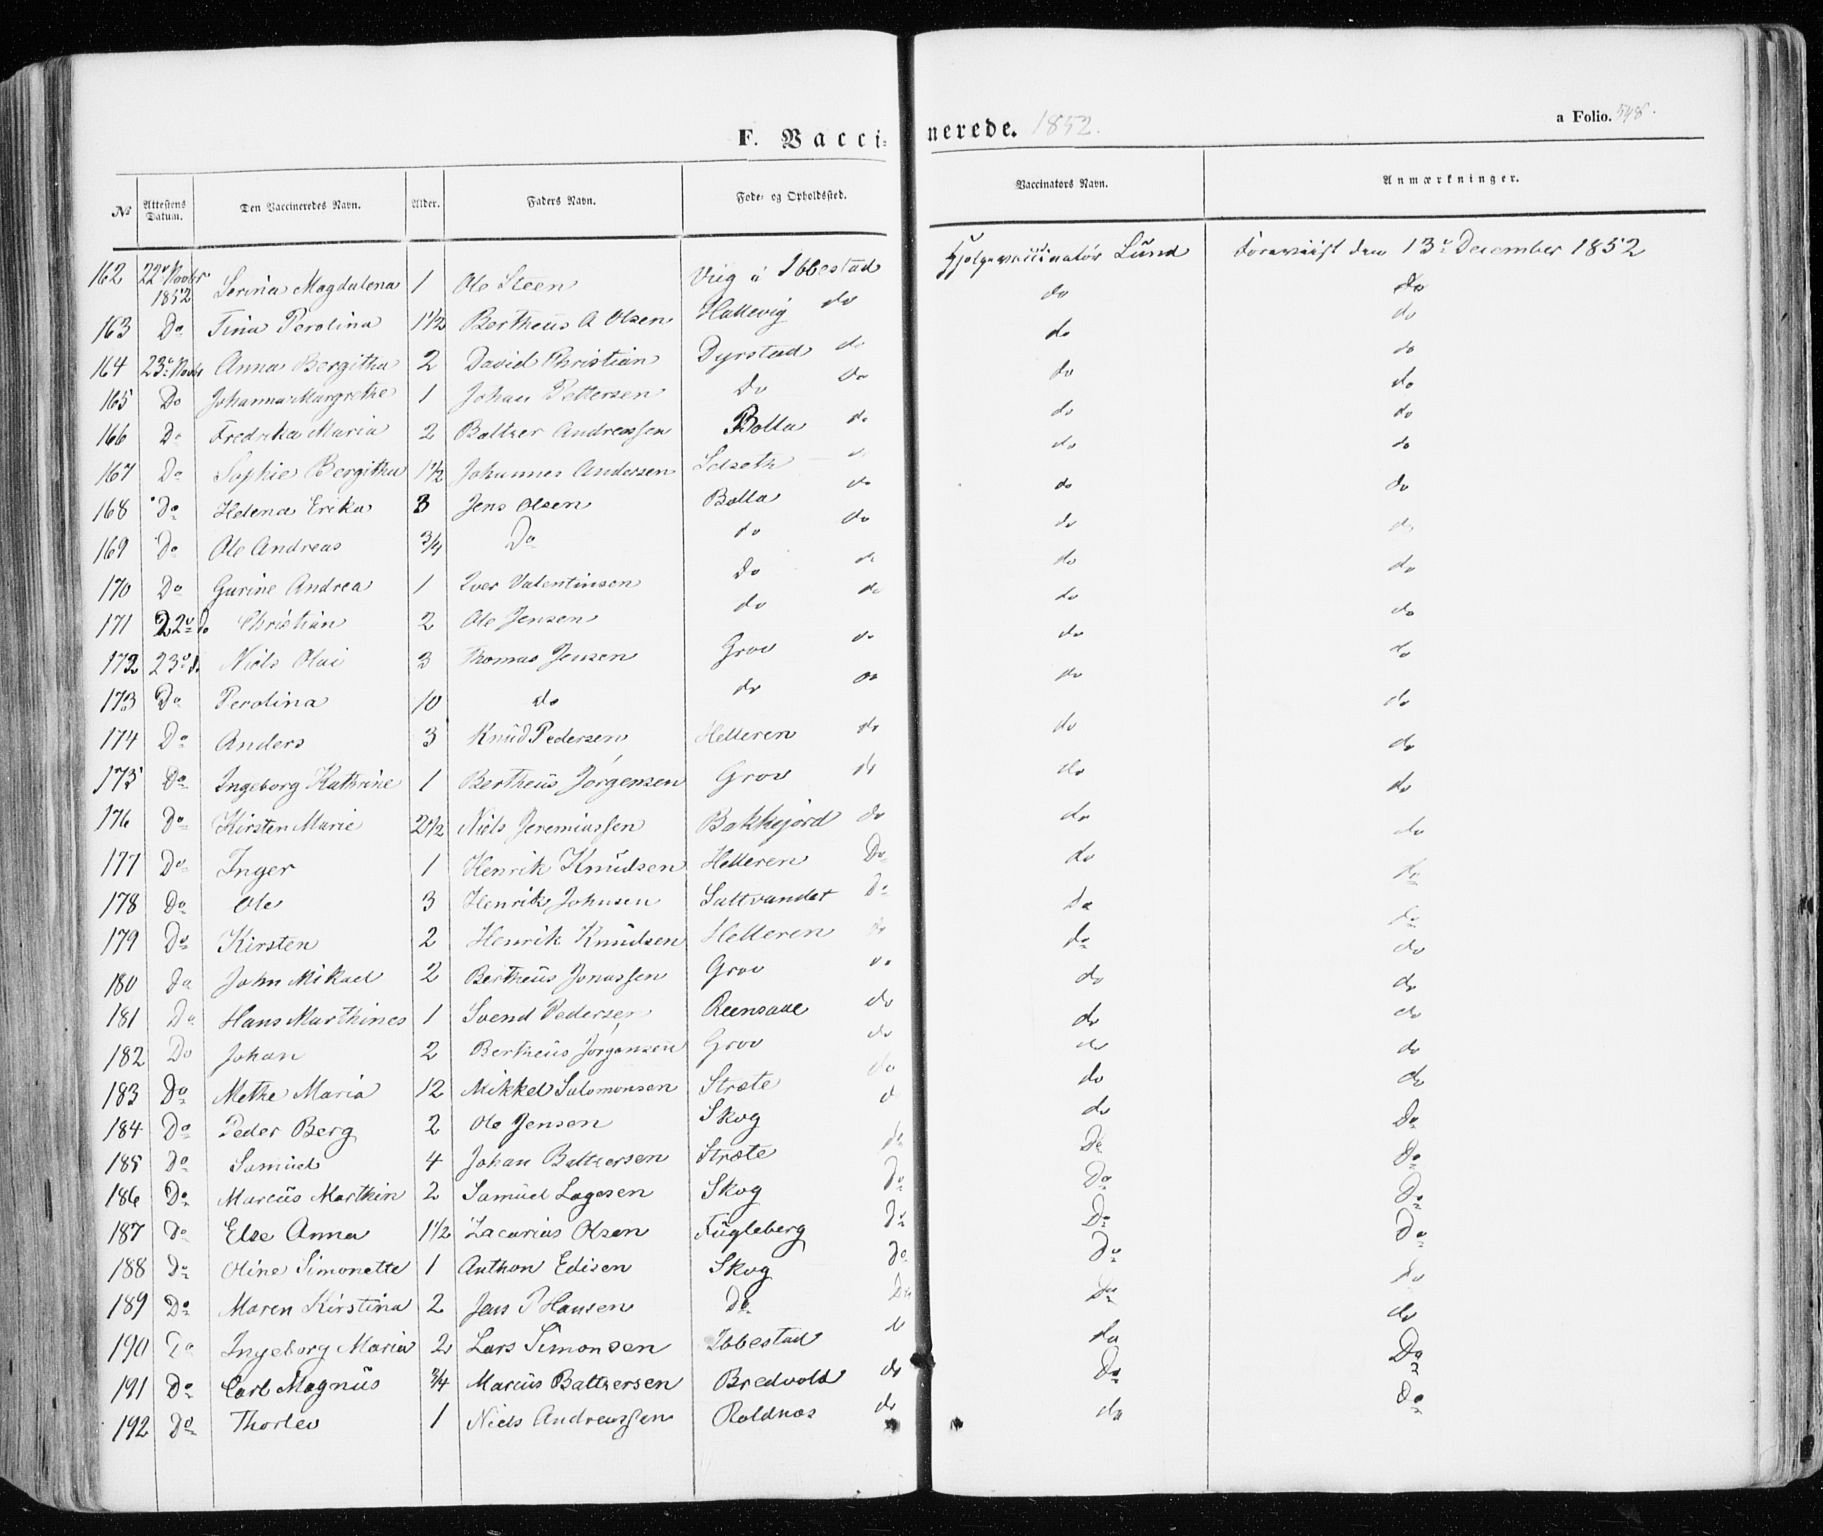 F. Vaccinerede. 1852.
a Folio. 548.
No Attestens Datum. Den Vaccineredes Navn. Alder. Faders Navn. Føde- og Opholdssted. Vaccinators Navn. Anmærkninger.
162 22de Novbr 1852 Serina Magdalena 1 Ole Steen Vüg i Ibbestad Hjelpevaccinatør Lund Foreviist den 13de December 1852
163 Do Tina Perolina 1 1/2 Bertheüs A Olsen Hallevig do do do
164 23de Novbr Anna Bergitha 2 David Christian Dyrstad do do do
165 Do Johanna Margrethe 1 Johan Pettersen Do do do do
166 Do Fredrika Maria 2 Baltzer Andreassen Bolla do do do
167 Do Sophie Bergitha 1 1/2 Johannes Andersen Selseth do do do
168 Do Helena Erika 3 Jens Olsen Bolla do do do
169 Do Ole Andreas 3/4 Do do do do do
170 Do Gurine Andrea 1 Iver Valentinsen do do do do
171 22de do Christian 2 Ole Jensen do do do do
172 23de d. Niels Olai 3 Thomas Jensen Grov do do do
173 Do Perolina 10 do do do do do
174 Do Anders 3 Knüd Pedersen Helleren do do do
175 Do Ingeborg Kathrine 1 Bertheüs Jørgensen Grov do do do
176 Do Kirsten Marie 2 1/2 Niels Jeremiassen Bakkejord do do do
177 Do Inger 1 Henrik Knüdsen Helleren Do do do
178 Do Ole 3 Henrik Johnsen Saltvandet Do Do do
179 Do Kirsten 2 Henrik Knüdsen Helleren do do do
180 Do John Mikael 2 Bertheüs Jonassen Grov do do do
181 Do Hans Marthines 1 Svend Pedersen Reensaae do do do
182 Do Johan 2 Bertheüs Jørgensen Grov do do do
183 Do Methe Maria 12 Mikkel Salomonsen Stræte do do do
184 Do Peder Berg 2 Ole Jensen Skog do do Do
185 Do Samüel 4 Johan Baltzersen Stræte do Do Do
186 Do Marcüs Marthin 2 Samüel Lagesen Skog Do Do Do
187 Do Else Anna 1 1/2 Zacarias Olsen Fügleberg Do Do Do
188 Do Oline Simonette 1 Anthon Edisen Skog Do Do do
189 Do Maren Kirstina 2 Jens P Hansen Do Do Do do
190 Do Ingeborg Maria 2 Lars Simonsen Ibbestad do do Do
191 Do Carl Magnüs 3/4 Marcüs Baltzersen Bredvold do Do Do
192 Do Thorlev 1 Niels Andreassen Roldnæs do do